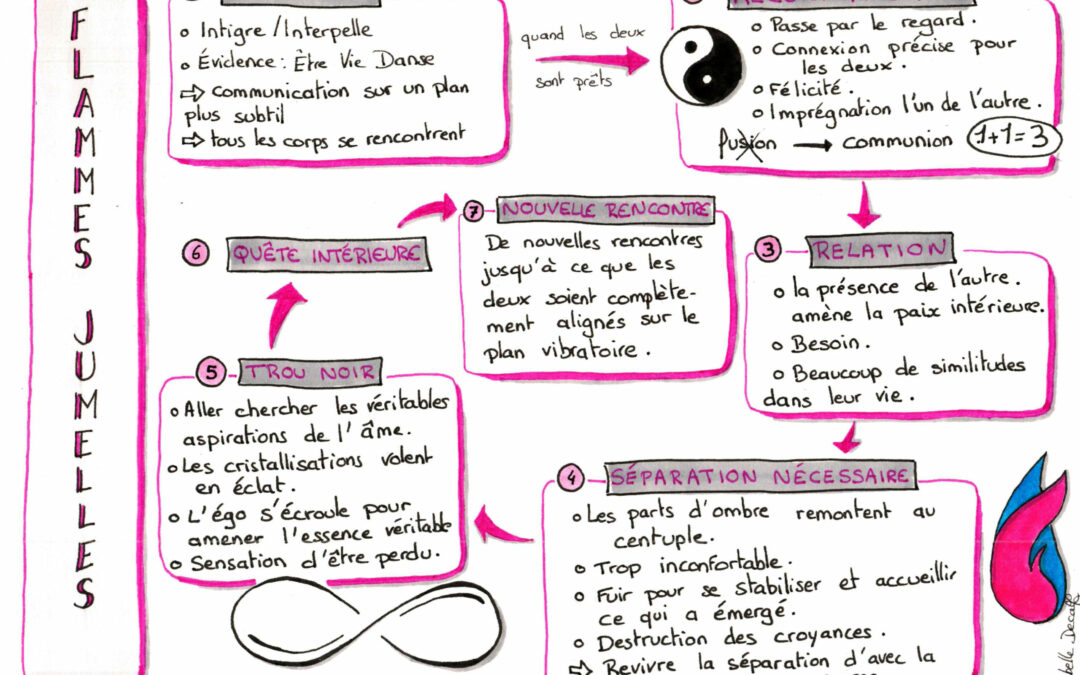 FLAMMES JUMELLES
o Intigre / Interpelle
o Évidence : Être Vie Danse
⇨ communication sur un plan
plus subtil
⇨ tous les corps se rencontrent
quand les deux
sont prêts
o Passe par le regard.
o Connexion précise pour
les deux.
o Félicité.
o Imprégnation l'un de l'autre.
fusion → communion 1+1=3
3 RELATION
o la présence de l'autre.
amène la paix intérieure.
o Besoin.
o Beaucoup de similitudes
dans leur vie.
4 SÉPARATION NÉCESSAIRE
o Les parts d'ombre remontent au
centuple.
o Trop inconfortable.
o Fuir pour se stabiliser et accueillir
ce qui a émergé.
o Destruction des croyances.
⇨ Revivre la séparation d'avec la
5 TROU NOIR
o Aller chercher les véritables
aspirations de l'âme.
o Les cristallisations volent
en éclat.
o L'égo s'écroule pour
amener l'essence véritable
o Sensation d'être perdu.
6 QUÊTE INTÉRIEURE
7 NOUVELLE RENCONTRE
De nouvelles rencontres
jusqu'à ce que les
deux soient complète-
ment alignés sur le
plan vibratoire.